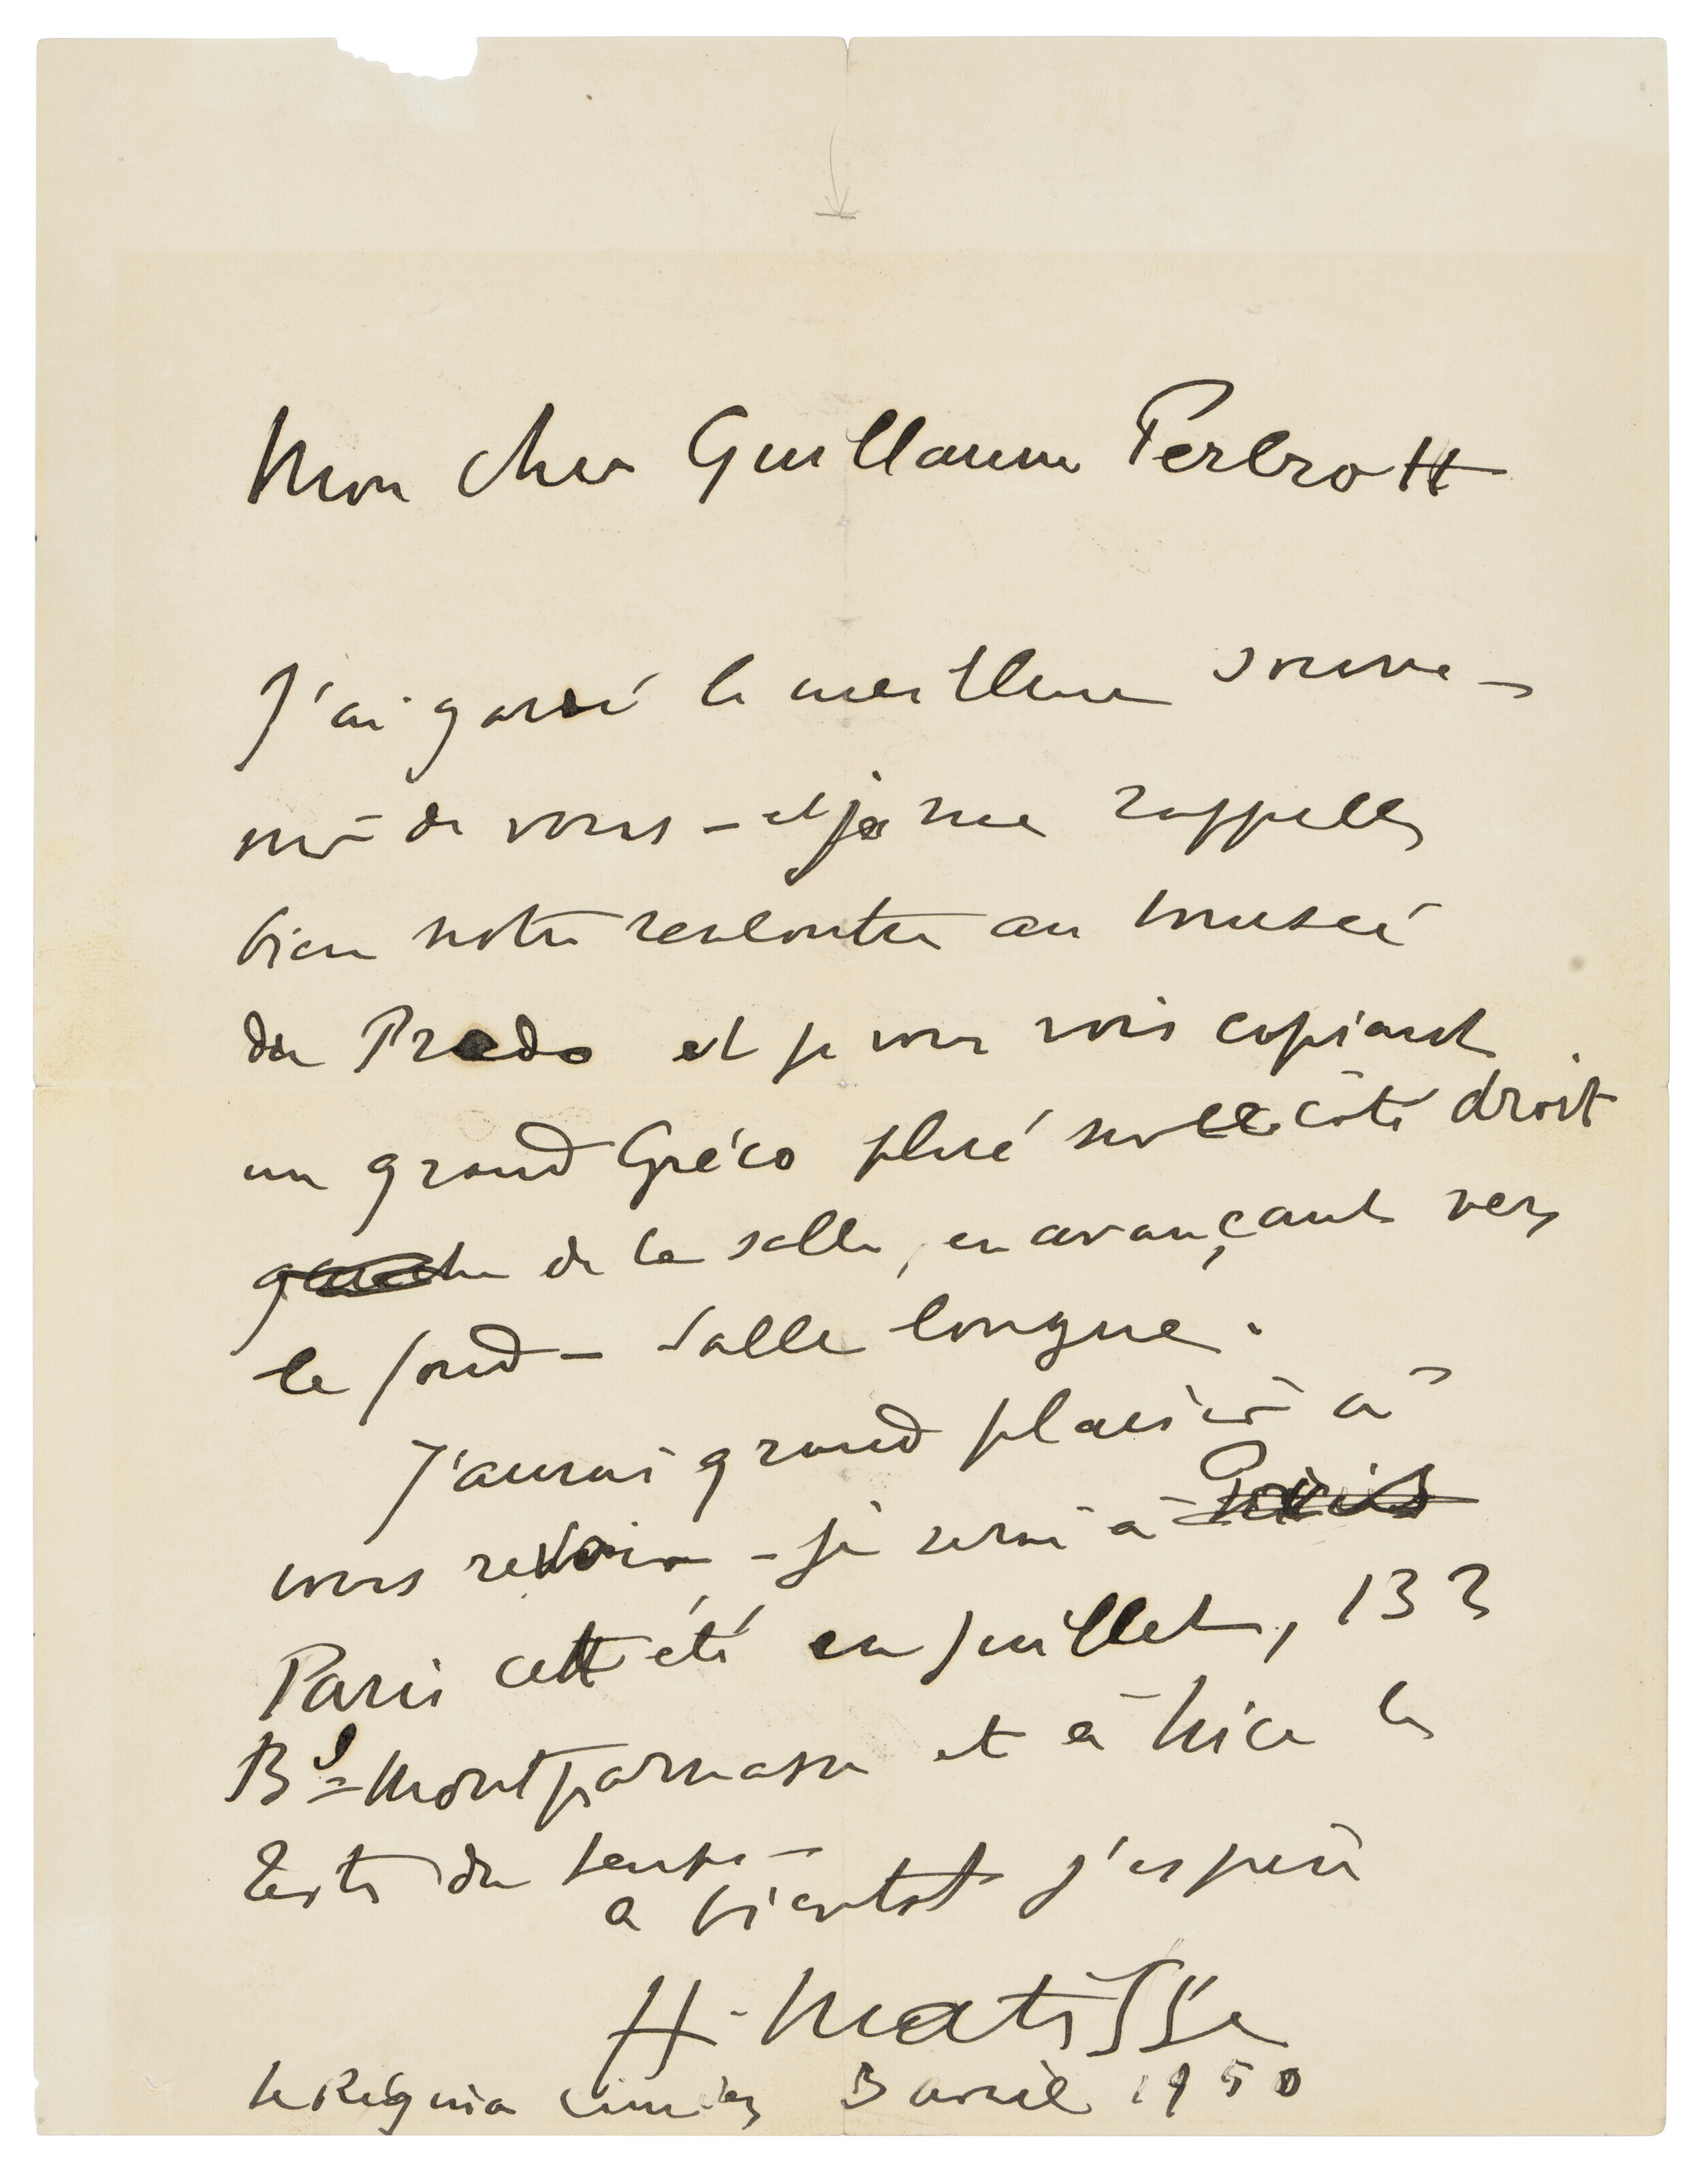 Mon cher Guillaume Perbrott
J'ai gardé le meilleur souve-
nir de vous – et je me rappelle
bien notre rencontre au musée
du Prado et je vous vois copiant
un grand Gréco placé sur le côté droit
gauche de la salle, en avançant vers
le fond – Salle longue.
J'aurai grand plaisir à
vous revoir – je serai à Paris
Paris cett été en juillet, 132
Bd Montparnasse et à Nice le
reste du temps –
a bientot j'espère
H. Matisse
le Régina Cimiez 3 avril 1950